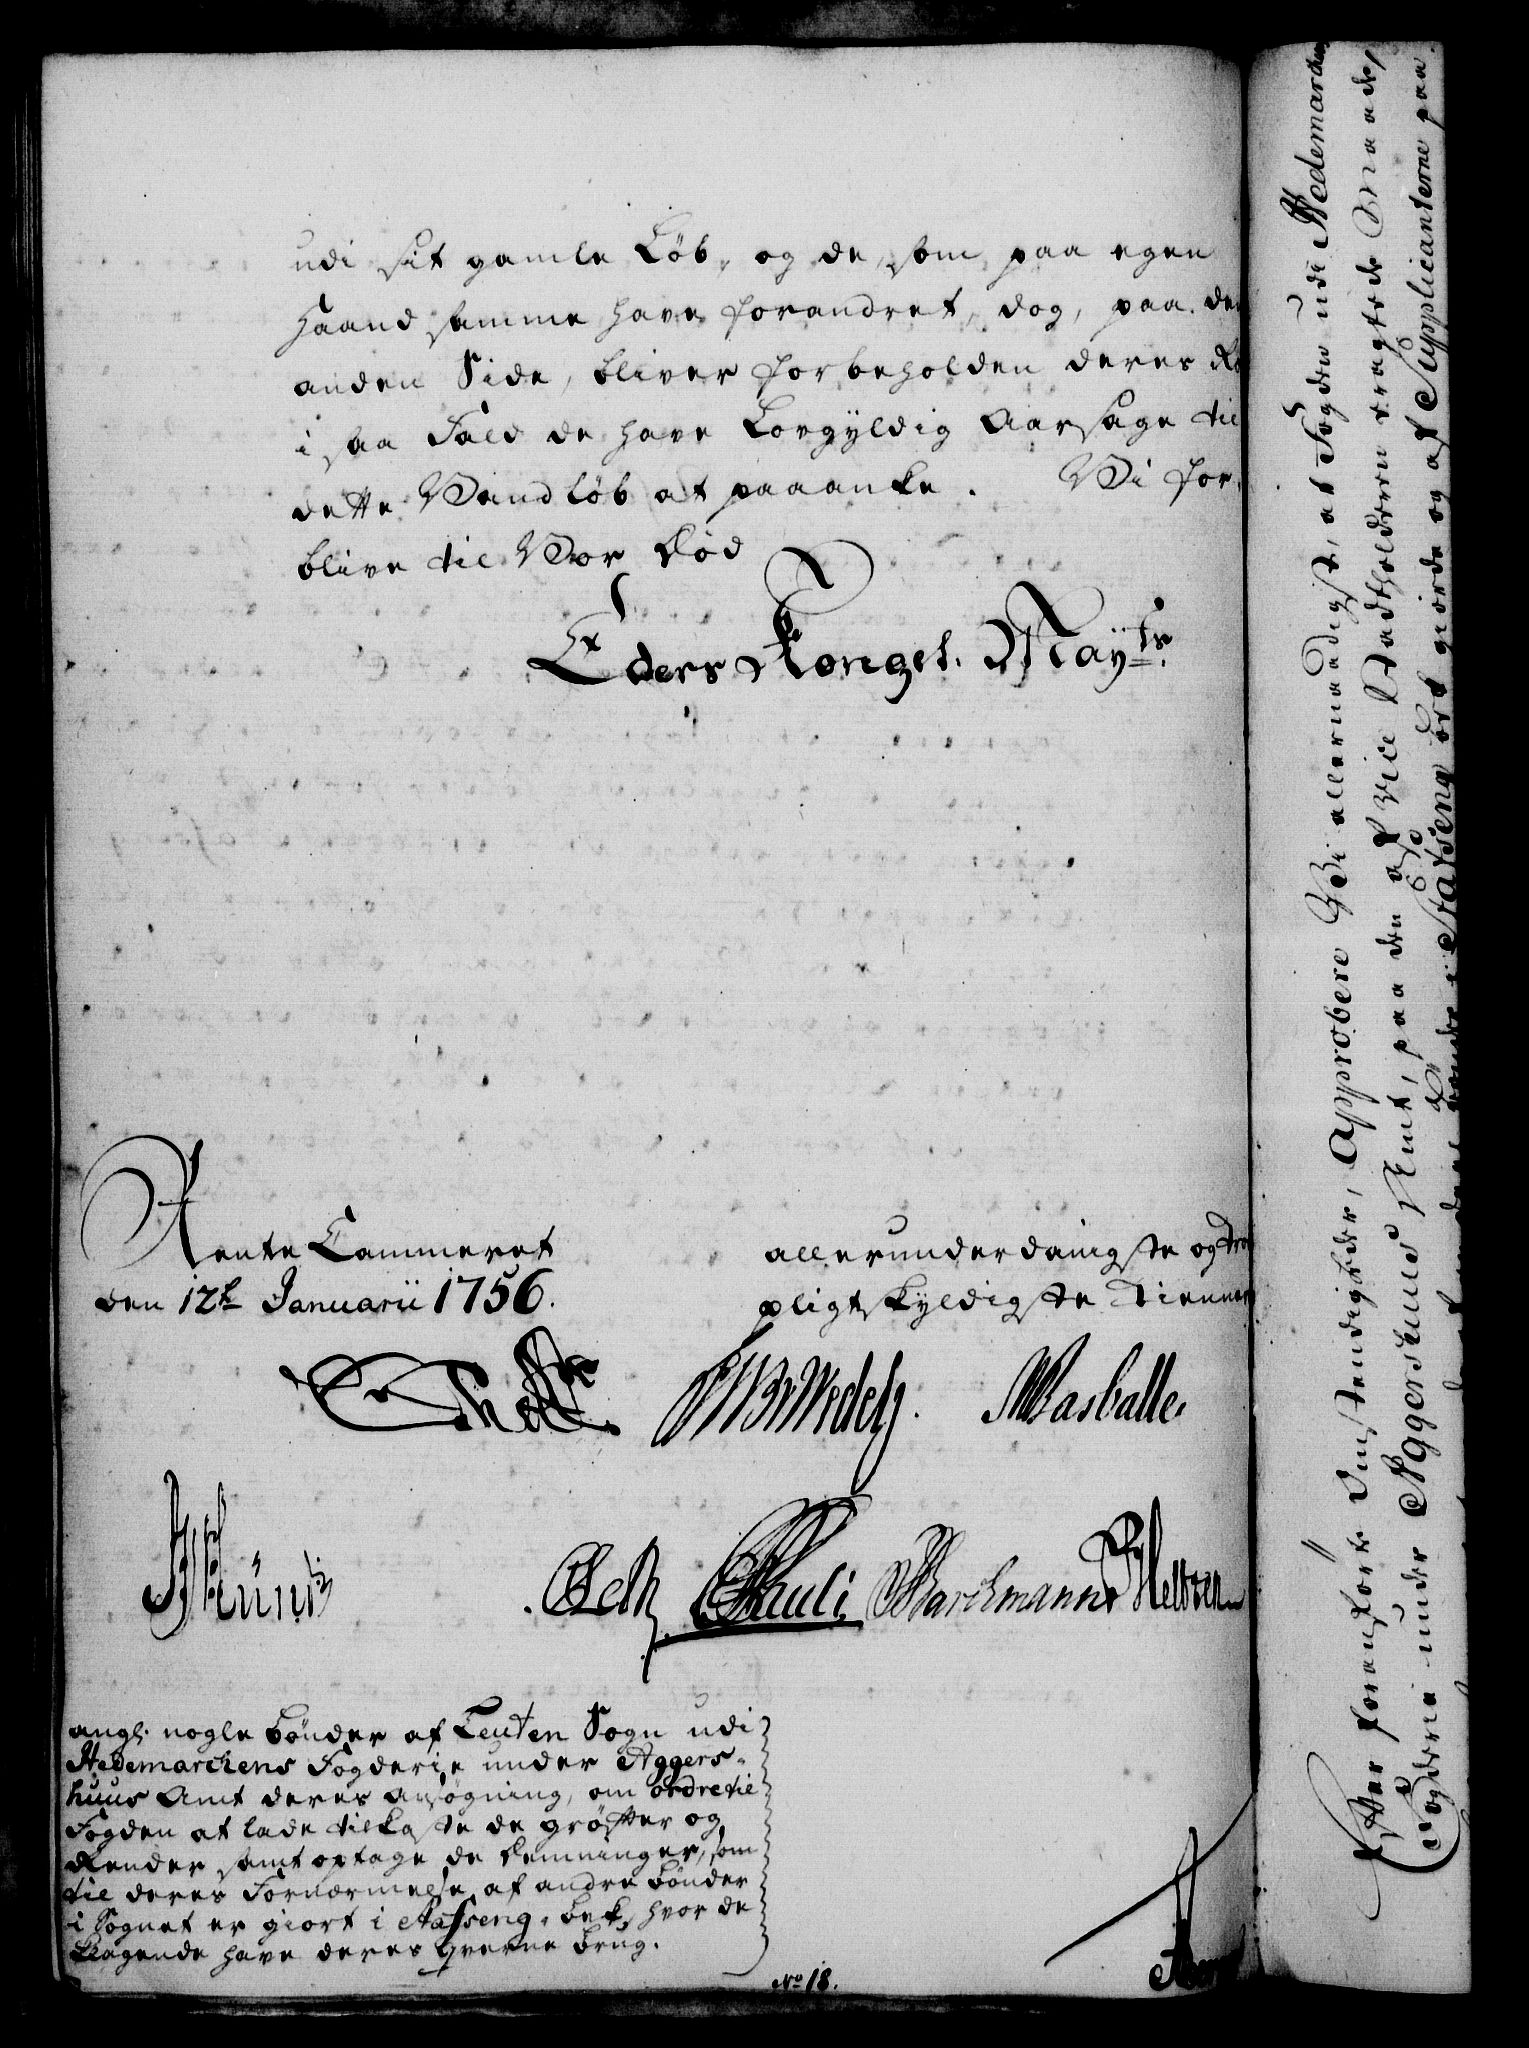 udi sit gamle Løb, og de, som paa egen
Haand samme have forandret, dog, paa den
anden Side, bliver forbeholden deres
i saa Fald de have Lovgyldig Aarsage til
dette Vandløb at paaanke. Vi for-
blive til Vor Død
Eders Kongel. Mayts.
Rente Cammeret
den 12te Januarii 1756.
allerunderdanigste og
pligtskyldigste Tienner
Wedel. MBasballe.
Pauli Barchmann Heltzen
angl. nogle Bønder af Leuten Sogn udi
Hedemarchens Fogderie under Aggers-
huus Amt deres Ansøgning, om ordre til
Fogden at lade tilkaste de grøfter og
Render samt optage de Demninger, som
til deres Fornærmelse af andre Bønder
i Sognet er giort i Aasseng-bek, hvor de
klagende have deres Qverne brug.
No 18.
Efter foranførte Omstendigheder, Approbere Vi allernaadigst, at Fogden udi Hedemarchens
Fogderie under Aggershuus Amt, paa den af Vice Stadtholderen eragtede Maade,
giorde og af Supplicanterne paa